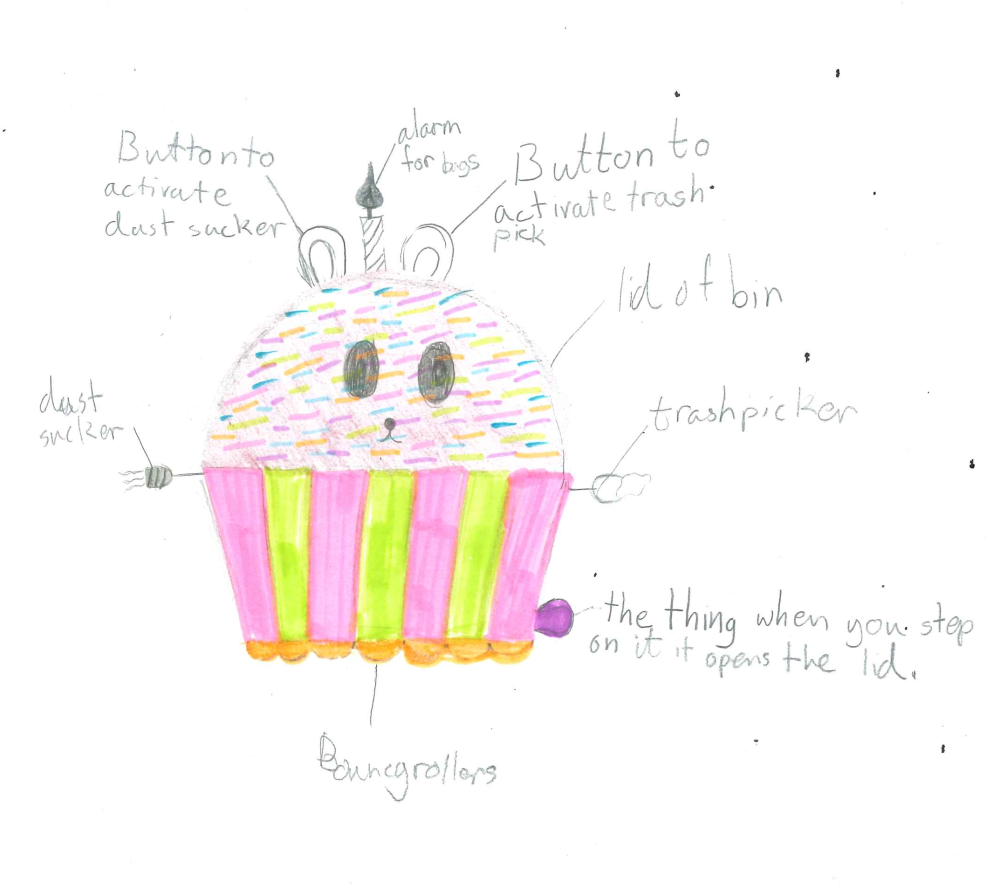 alarm
for bugs
Button to
activate
dust sucker
Button to
activate trash
pick
lid of bin
dust
sucker
trashpicker
the thing when you step
on it it opens the lid.